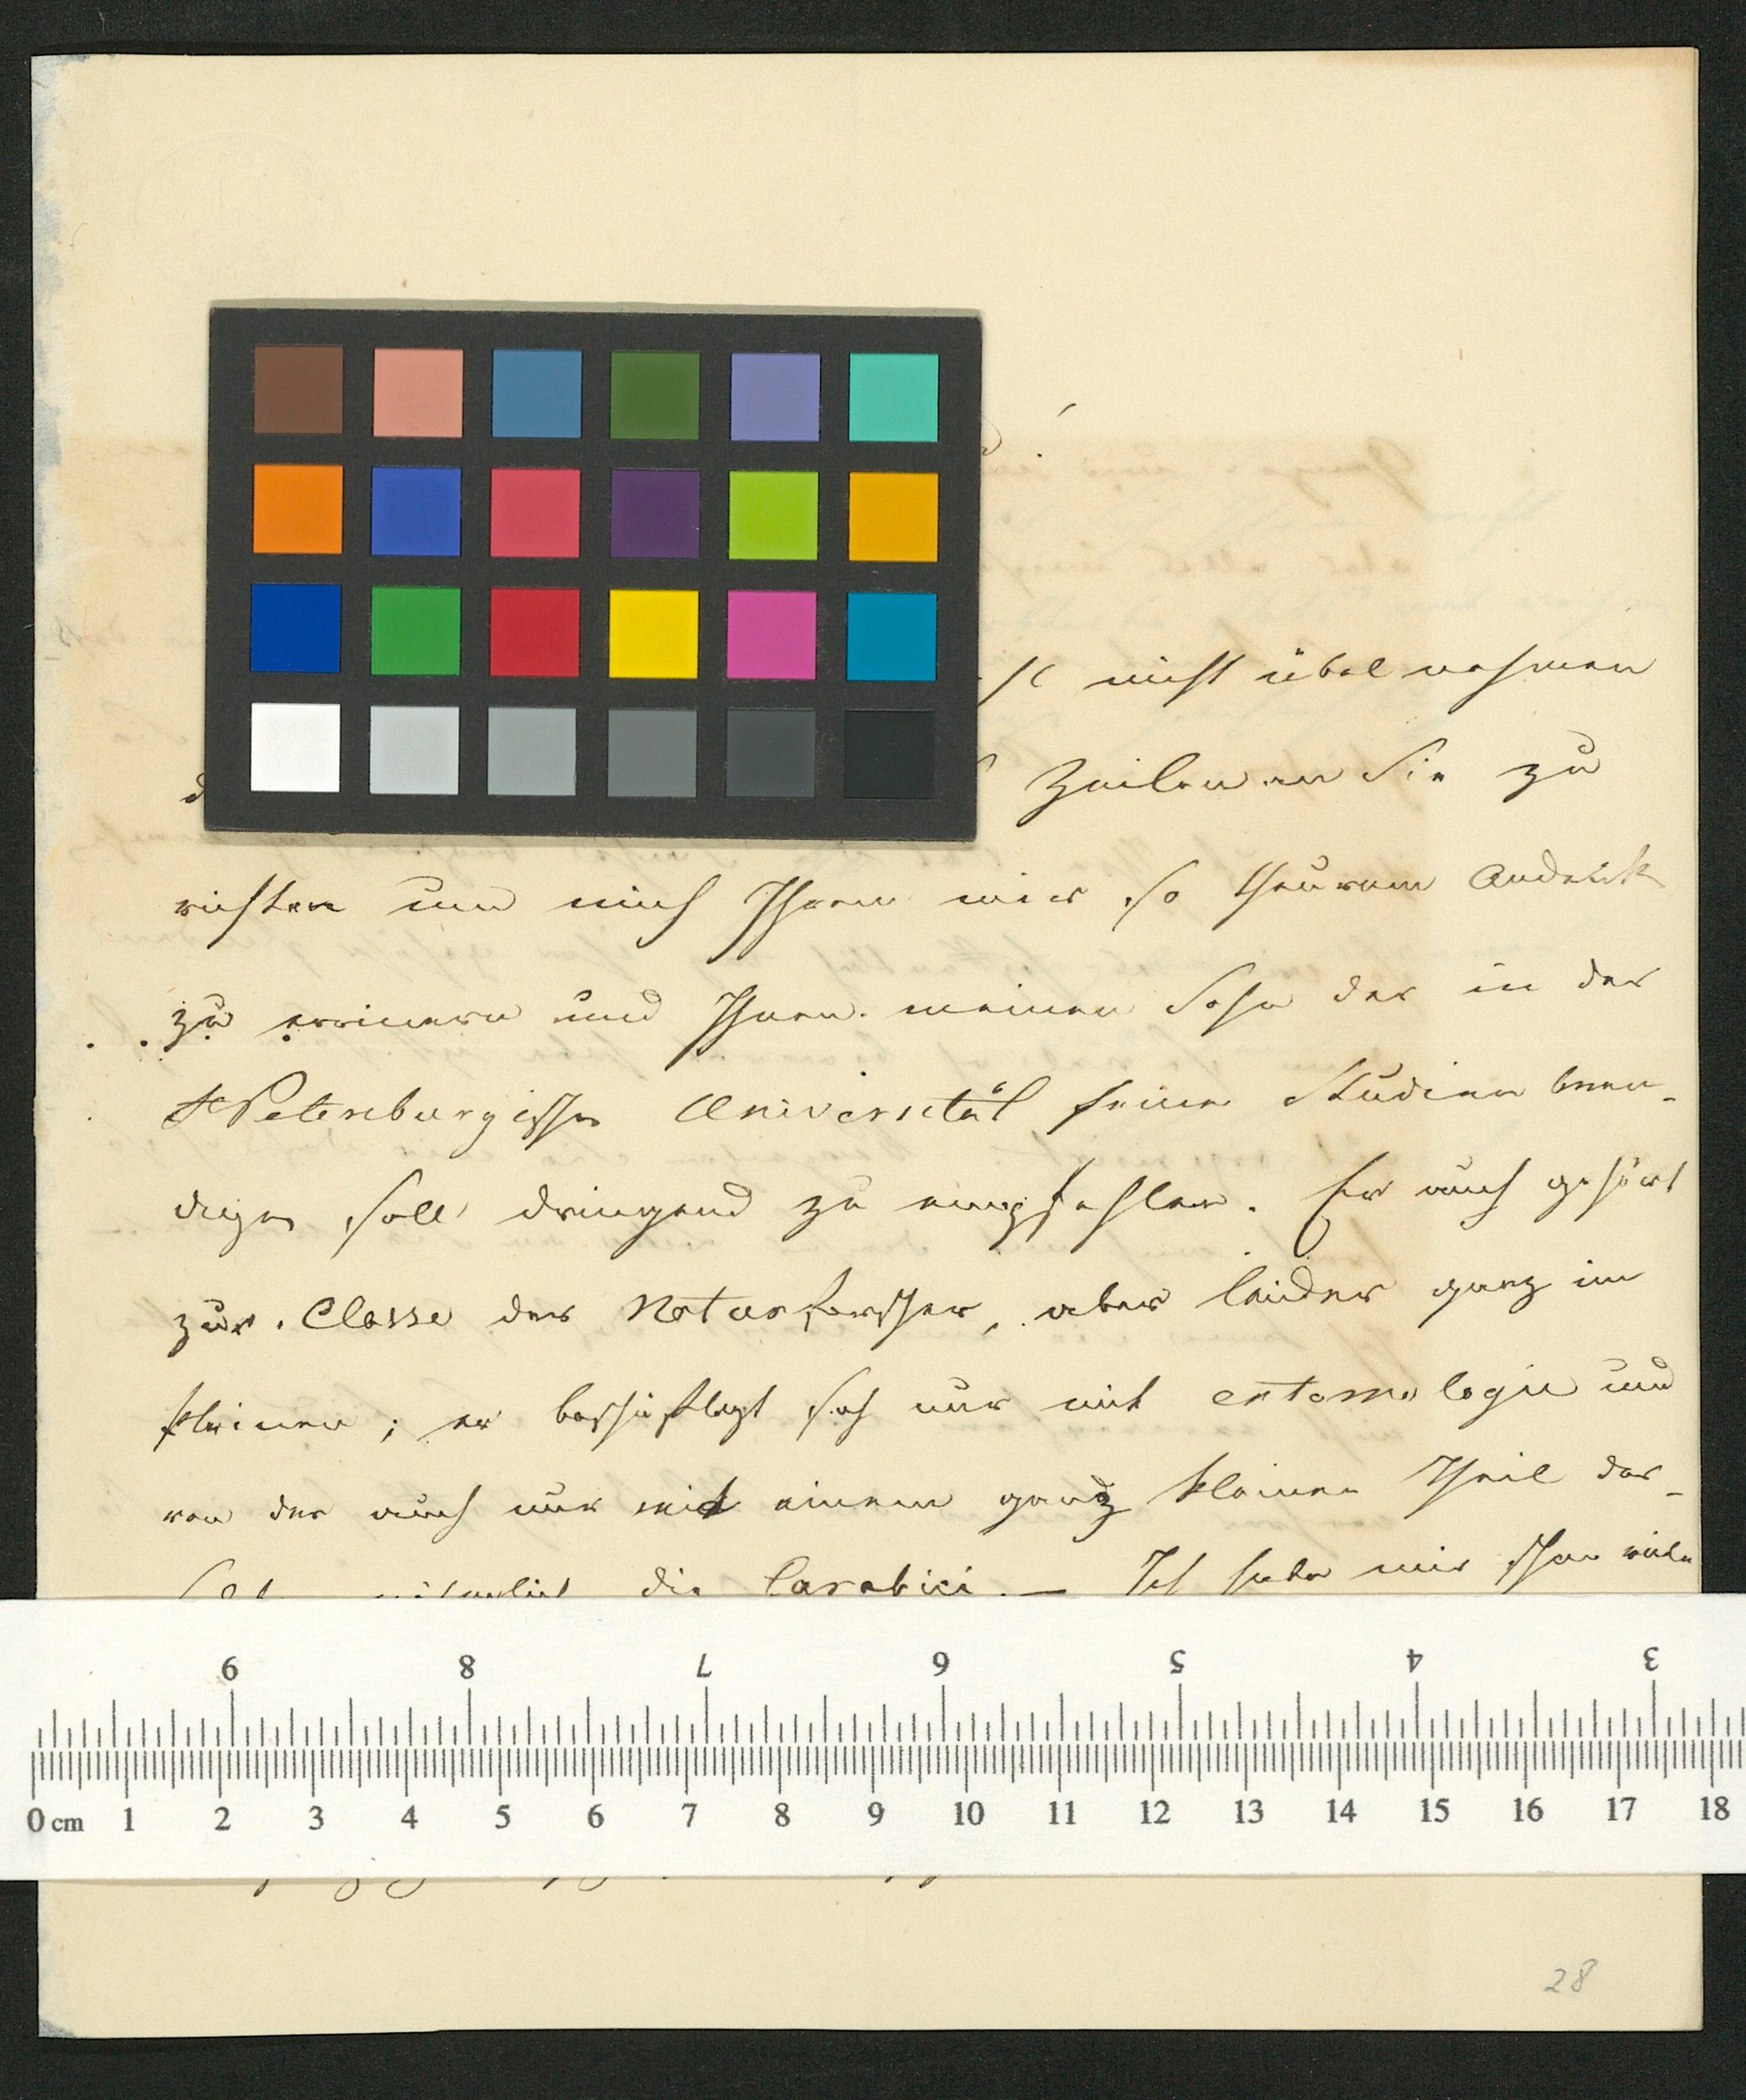 nicht übel nehmen
Zeilen an Sie zu
richten um mich Ihren mir so theuren Andenk
zu erinnern und Ihnen meinen Sohn der in der
St Petersburgisher Universität seine Studien been-
digen soll dringend zu empfehlen. Er auch gehört
zur Classe der Naturforscher, aber leider ganz im
kleinen; er beschäftigt sich nur mit entomologie und
von der auch nur mit einem ganz kleinen Theil der-
die Carabici. — Ich habe mir Ihre viele
9 8 7 6 5 4 3
0 cm 1 2 3 4 5 6 7 8 9 10 11 12 13 14 15 16 17 18
28